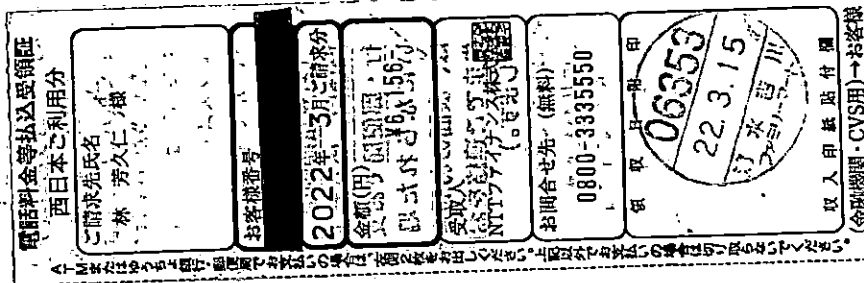 電話料金等払込受領証
西日本ご利用分
ご請求先氏名
林 芳久仁 様
お客様番号
2022年 3月ご請求分
金額(円)
¥6,156
受取人
NTTファイナンス株式
お問合せ先 (無料)
0800-3335550
領収日附印
06353
22.3.15
ファミリーマート
収入印紙貼付欄
(金融機関・CVS用)→お客様
ATMまたはゆうちょ銀行・郵便局でお支払いの場合は、左側2枚をお出しください。上記以外でお支払いの場合は切り取らないでください。